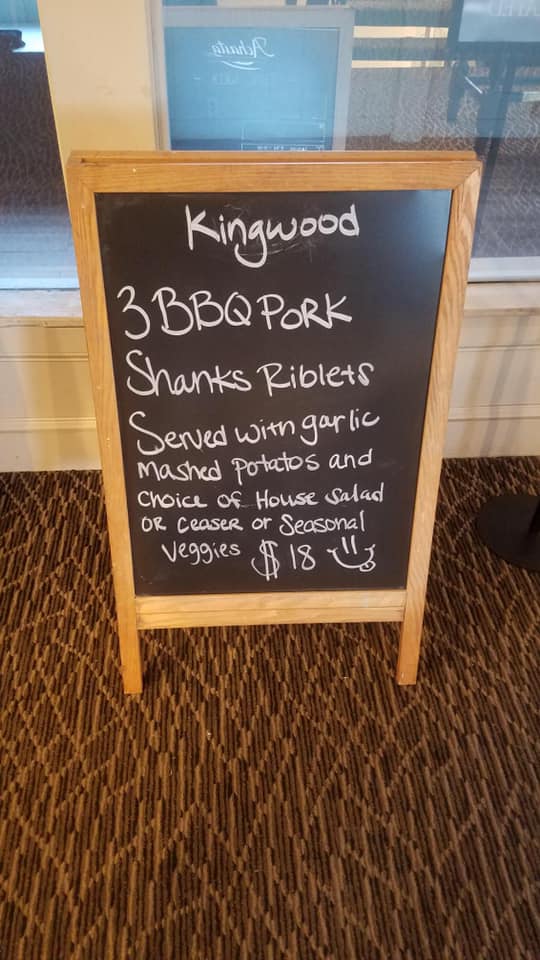 Kingwood
3 BBQ PORK
Shanks Riblets
Served with garlic
Mashed potatos and
choice of House salad
OR ceaser or Seasonal
Veggies $18